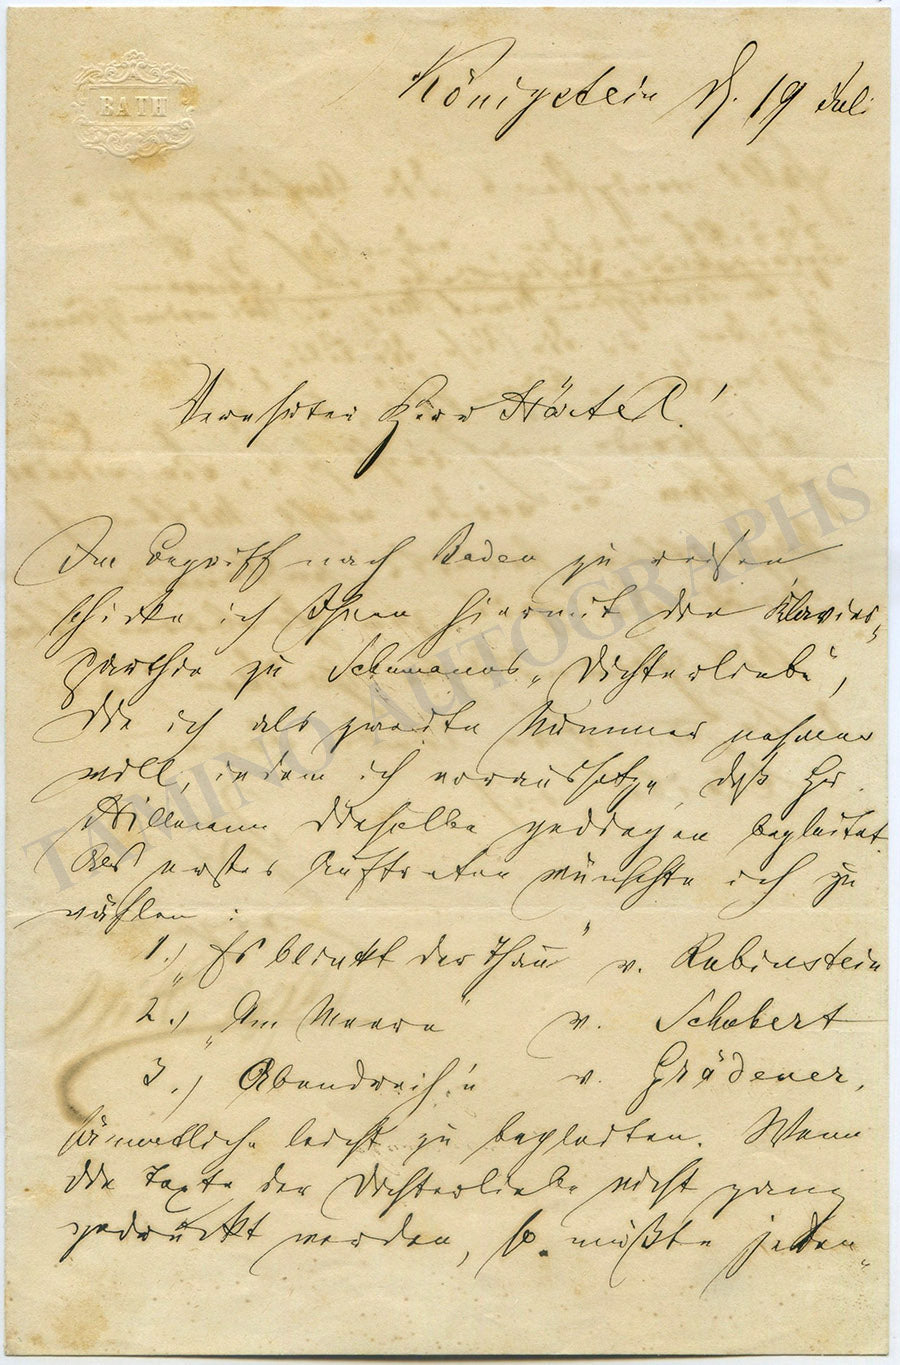 BATH
Königstein d. 19 Juli
Verehrter Herr Härtel!
Im Begriff nach Baden zu reisen
schicke ich Ihnen hiermit die Klavier-
parthie zu Schumanns „Dichterliebe",
die ich als zweite Nummer nehmen
will, indem ich voraussetze, daß Hr.
Hillmann dieselbe gediegen begleitet.
Als erstes Auftreten wünschte ich zu
wählen:
1.) „Es blinkt der Thau" v. Rubinstein
2.) „Am Meere" v. Schubert
3.) Abendreih'n v. Grädener,
sämmtliche leicht zu begleiten. Wenn
die Texte der Dichterliebe nicht ganz
gedruckt werden, so müßte jeden-
TAMINO AUTOGRAPHS